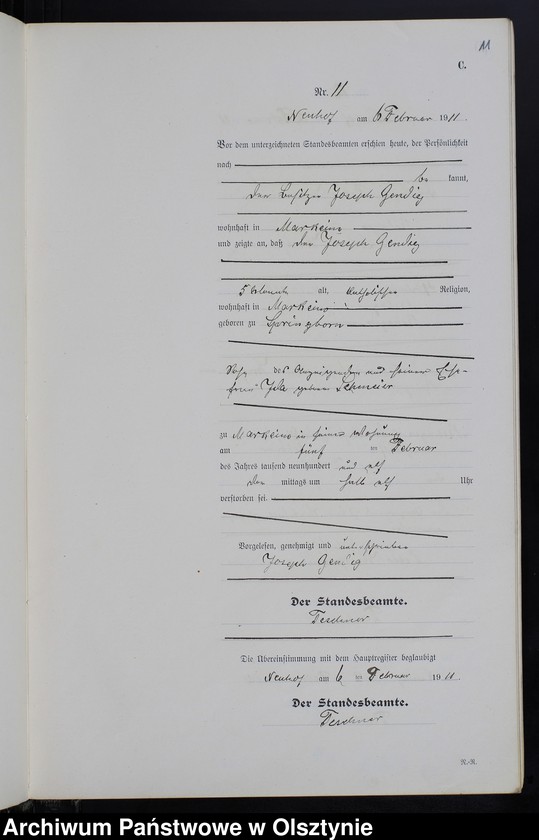 11
C.
Nr. 11
Neuhof am 6 Februar 1911.
Vor dem unterzeichneten Standesbeamten erschien heute, der Persönlichkeit
nach
be kannt,
der Besitzer Joseph Gendig
wohnhaft in Markeim
und zeigte an, daß der Joseph Gendig
5 Monate alt, katholischer Religion,
wohnhaft in Markeim
geboren zu Springborn
Sohn des Anzeigenden und seiner Ehe-
frau Ida geborene
zu Markeim in seiner Wohnung
am fünf ten Februar
des Jahres tausend neunhundert und elf
mittags um halb elf Uhr
verstorben sei.
Vorgelesen, genehmigt und unterschrieben
Joseph Gendig
Der Standesbeamte.
Teschner
Die Übereinstimmung mit dem Hauptregister beglaubigt
Neuhof am 6 ten Februar 1911.
Der Standesbeamte.
Teschner
N.-R.
Archiwum Państwowe w Olsztynie